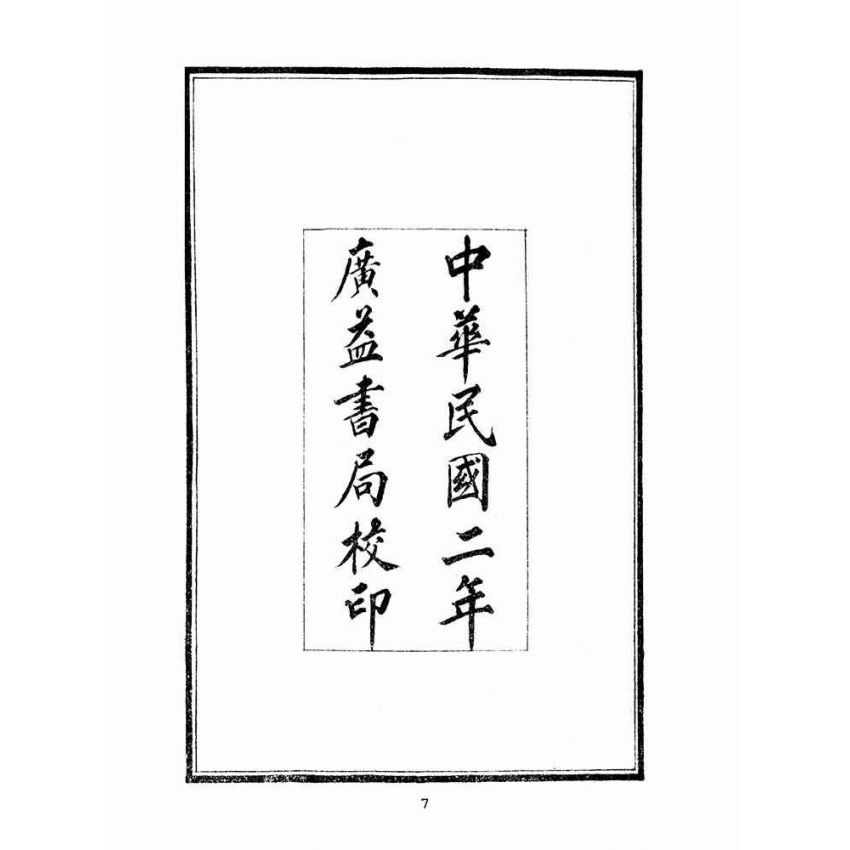 中華民國二年
廣益書局校印
7